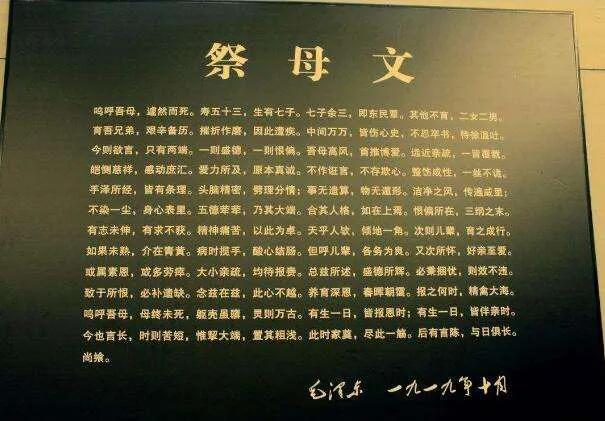 祭母文
呜呼吾母，遽然而死。寿五十三，生有七子。七子余三，即东民覃。其他不育，二女二男。
育吾兄弟，艰辛备历。摧折作磨，因此遘疾。中间万万，皆伤心史。不忍卒书，待徐温吐。
今则欲言，只有两端。一则盛德，一则恨偏。吾母高风，首推博爱。远近亲疏，一皆覆载。
恺恻慈祥，感动庶汇。爱力所及，原本真诚。不作诳言，不存欺心。整饬成性，一丝不诡。
手泽所经，皆有条理。头脑精密，劈理分情；事无遗算，物无遁形。洁净之风，传遍戚里；
不染一尘，身心表里。五德荦荦，乃其大端。合其人格，如在上焉。恨偏所在，三纲之末。
有志未伸，有求不获。精神痛苦，以此为卓。天乎人欤，倾地一角。次则儿辈，育之成行。
如果未熟，介在青黄。病时揽手，酸心结肠。但呼儿辈，各务为良。又次所怀，好亲至爱。
或属素恩，或多劳瘁。大小亲疏，均待报赉。总兹所述，盛德所辉。必秉悃忱，则效不违。
致于所恨，必补遗缺。念兹在兹，此心不越。养育深恩，春晖朝霭。报之何时，精禽大海。
呜呼吾母，母终未死。躯壳虽隳，灵则万古。有生一日，皆报恩时；有生一日，皆伴亲时。
今也言长，时则苦短，惟挈大端，置其粗浅。此时家奠，尽此一觞。后有言陈，与日俱长。
尚飨。
毛泽东 一九一九年十月